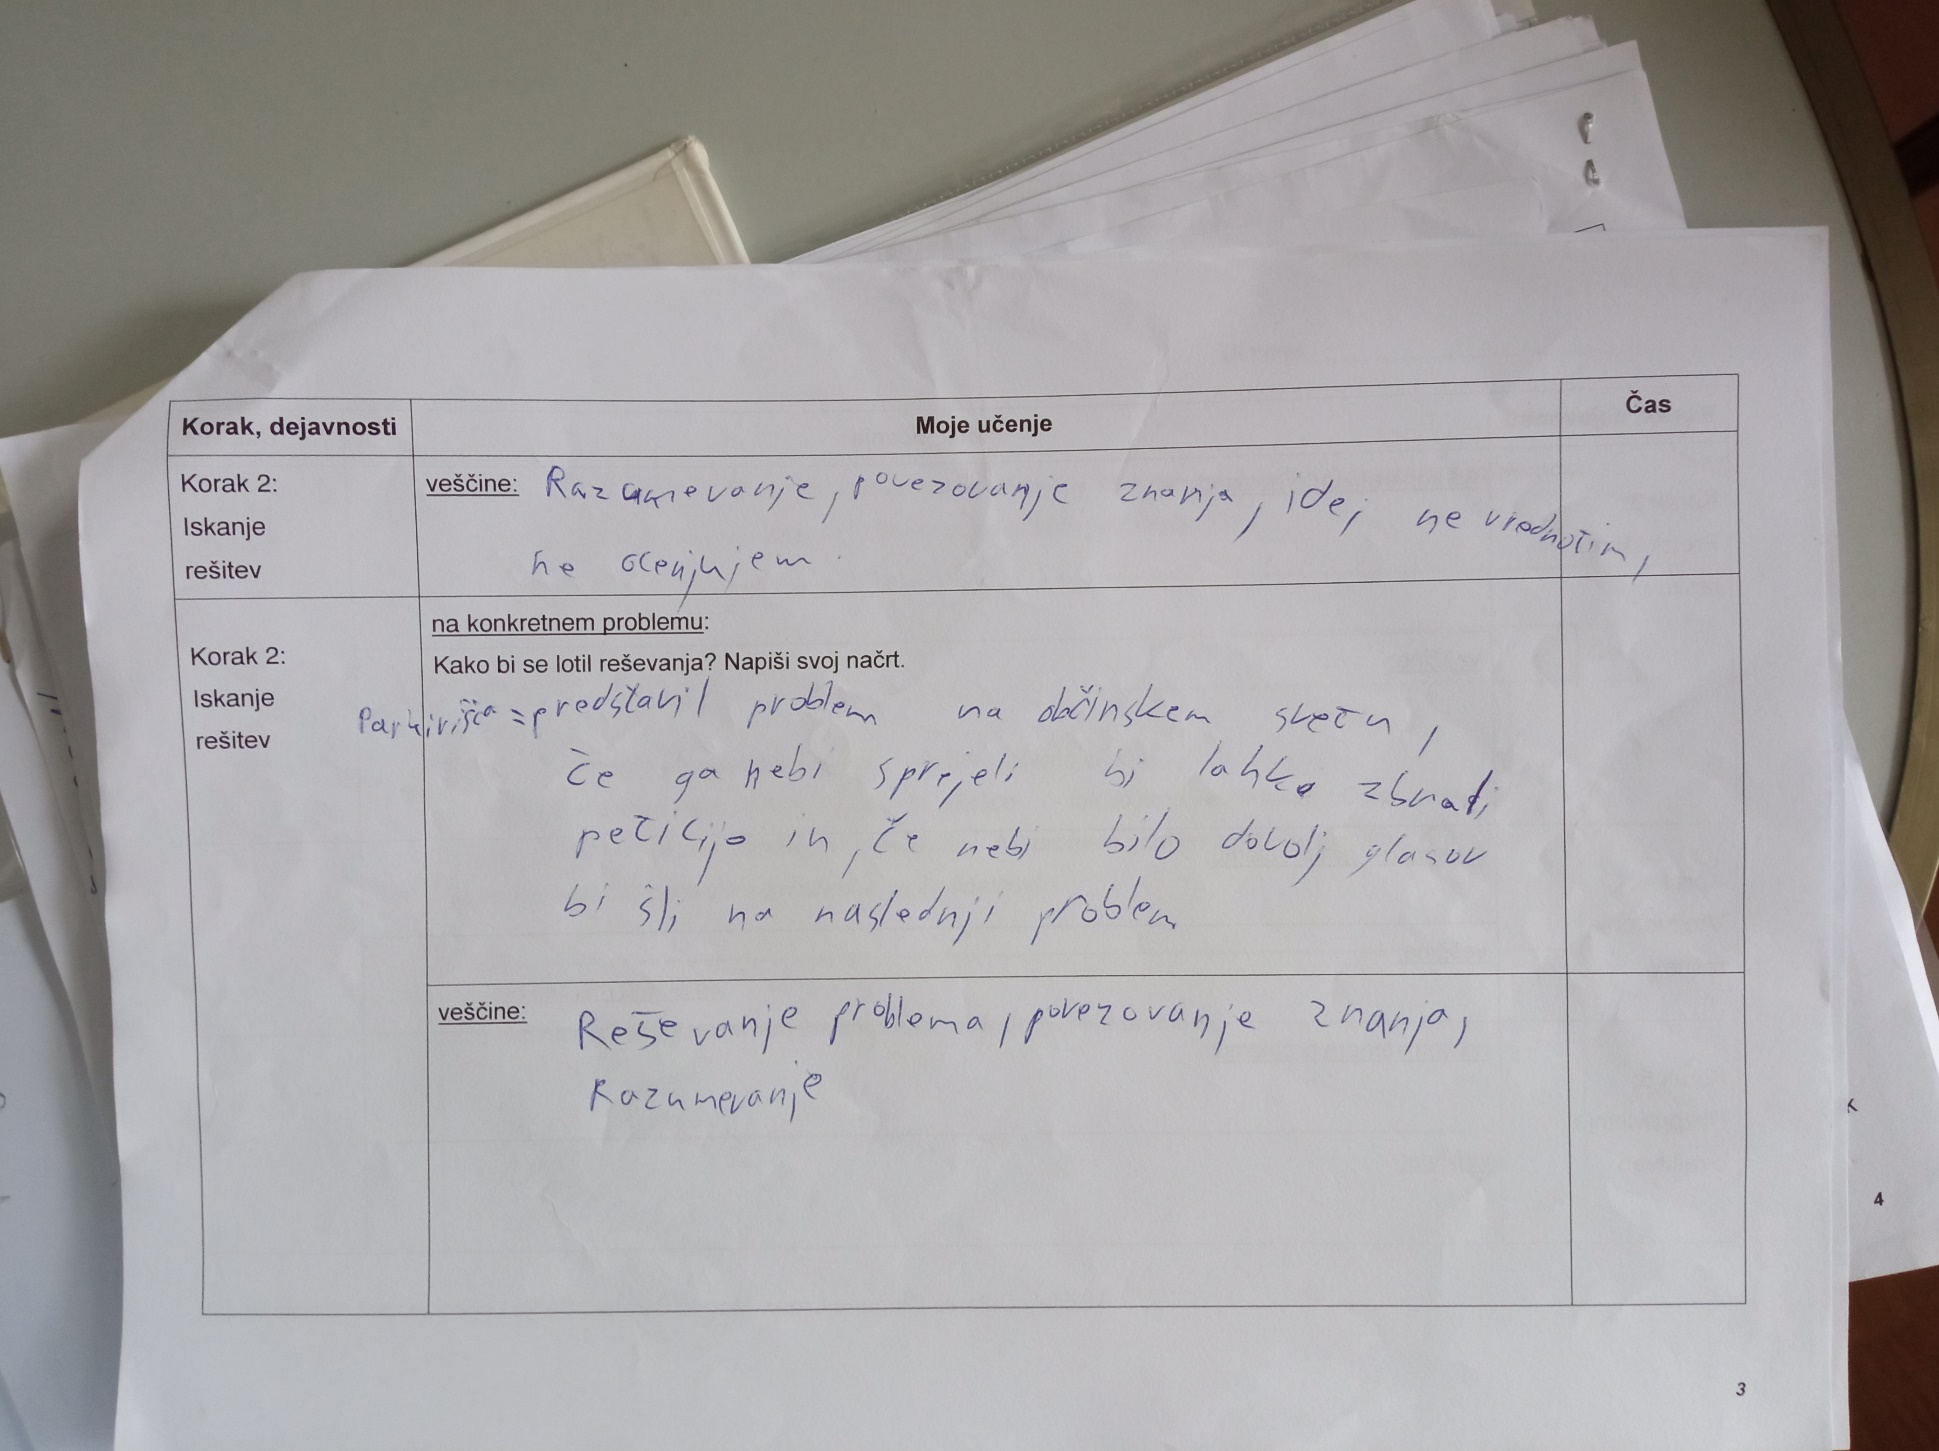 Korak, dejavnosti
Moje učenje
Čas
Korak 2:
Iskanje
rešitev
veščine: Razumevanje, povezovanje znanja, idej ne vrednotim,
ne ocenjujem.
Korak 2:
Iskanje
rešitev
na konkretnem problemu:
Kako bi se lotil reševanja? Napiši svoj načrt.
Parkirišča = predstavil problem na občinskem svetu,
če ga nebi sprejeli bi lahko zbrati
peticijo in, če nebi bilo dovolj glasov
bi šli na naslednji problem
veščine: Reševanje problema, povezovanje znanja,
Razumevanje
3
4